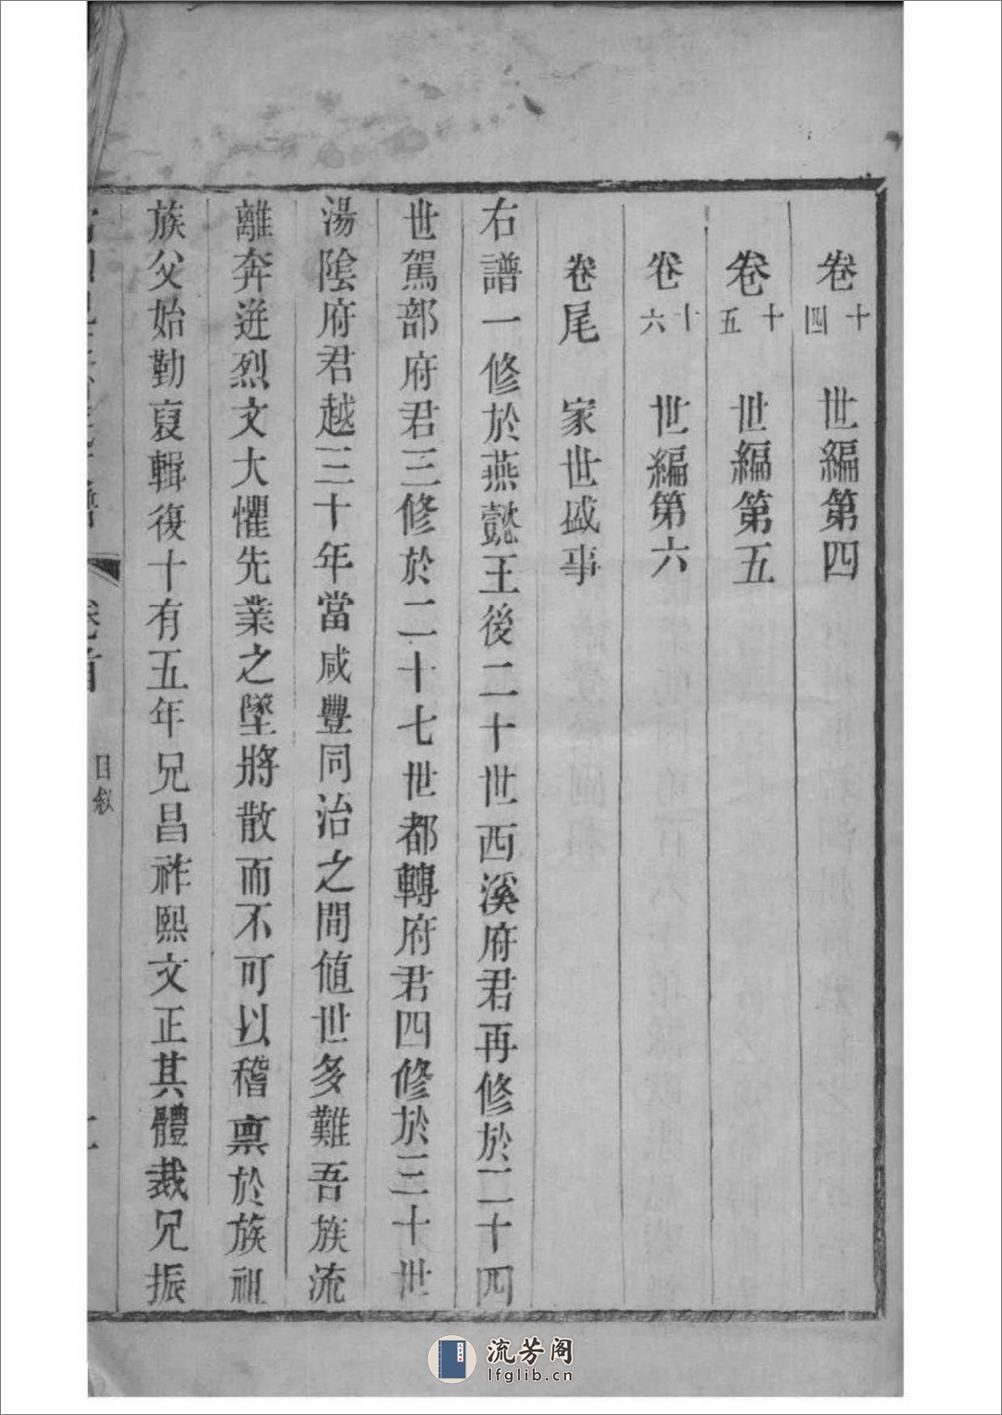 卷十四 世編第四
卷十五 世編第五
卷十六 世編第六
卷尾 家世盛事
右譜一修於燕懿王後二十世西溪府君再修於二十四
世駕部府君三修於二十七世都轉府君四修於三十世
湯陰府君越三十年當咸豐同治之間値世多難吾族流
離奔迸烈文大懼先業之墜將散而不可以稽稟於族祖
族父始勤裒輯復十有五年兄昌祚熙文正其體裁兄振
卷首 目敘
流芳阁
lfglib.cn